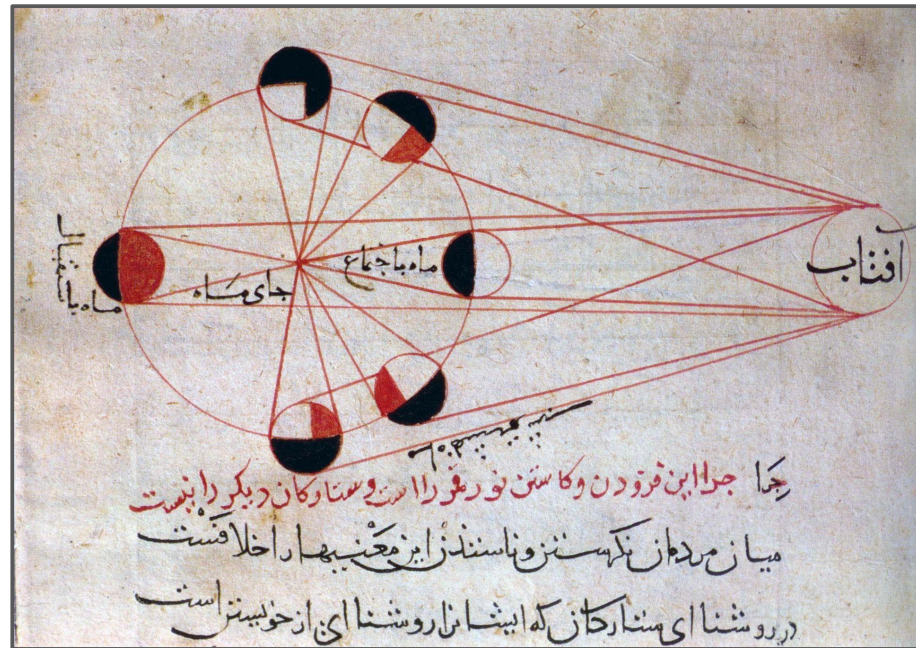 افتاب
ماه باجتماع
جای ماه
ماه باستقبال
ماه
چرا جرا این فزودن و کاستن نور قمر را است و ستارکان دیکر را نیست
میان مردمان نکرستن و ناستدن این معنیها را خلافست
در روشنا ای ستارکان که ایشانرا روشنا ای از خویشتن است